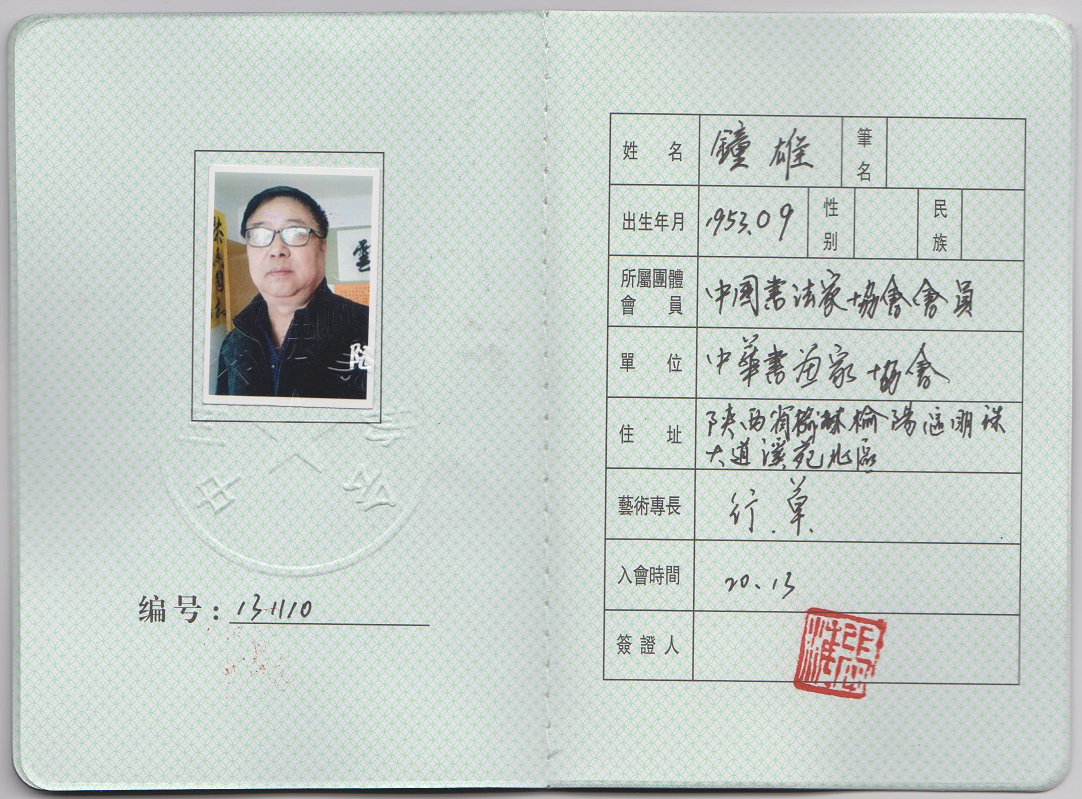 编号：131110
姓名 鐘雄 筆名
出生年月 1953.09 性别 民族
所屬團體會員 中國書法家協會會員
單位 中華書画家協會
住址 陝西省榆林榆陽區明珠
大道溪苑北區
藝術專長 行.草.
入會時間 20.13
簽證人